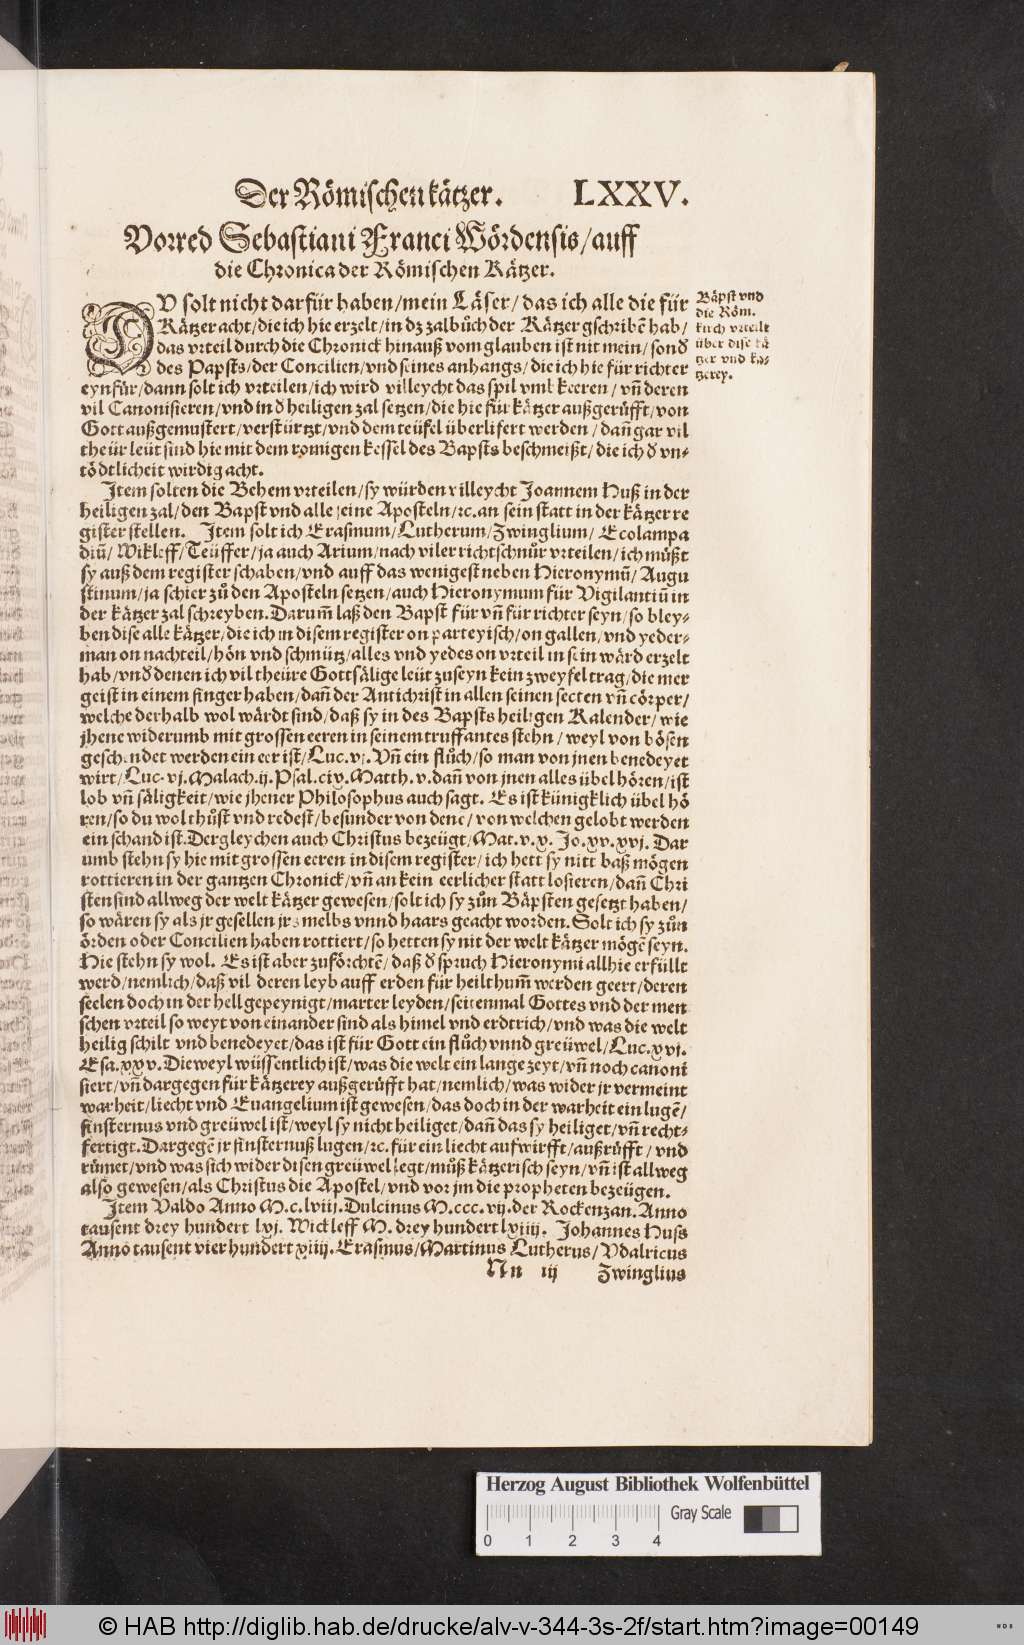 Der Römischen kätzer. LXXV.
Vorred Sebastiani Franci Wördensis/auff
die Chronica der Römischen Kätzer.
DV solt nicht darfür haben/mein Läser/das ich alle die für
Kätzer acht/die ich hie erzelt/in dz zalbůch der Kätzer gschribẽ hab/
das vrteil durch die Chronick hinauß vom glauben ist nit mein/sonđ
des Papsts/der Concilien/vnd seines anhangs/die ich hie für richter
eynfür/dann solt ich vrteilen/ich wird villeycht das spil vmbkeeren/vñ deren
vil Canonisieren/vnd in đ heiligen zal setzen/die hie für kätzer außgerüfft/von
Gott außgemustert/verstürtzt/vnd dem teüfel überlifert werden/dañ gar vil
theür leüt sind hie mit dem romigen kessel des Bapsts beschmeißt/die ich đ vn-
tödtlicheit wirdig acht.
Item solten die Behem vrteilen/sy würden villeycht Joannem Huß in der
heiligen zal/den Bapst vnd alle seine Aposteln/rc. an sein statt in der kätzer re
gister stellen. Item solt ich Erasmum/Lutherum/Zwinglium/Ecolampa
diũ/Wikleff/Teüffer/ja auch Arium/nach viler richtschnůr vrteilen/ich můßt
sy auß dem register schaben/vnd auff das wenigest neben Hieronymũ/Augu
stinum/ja schier zů den Aposteln setzen/auch Hieronymum für Vigilantiũ in
der kätzer zal schreyben. Darum̃ laß den Bapst für vñ für richter seyn/so bley-
ben dise alle kätzer/die ich in disem register on parteyisch/on gallen/vnd yeder-
man on nachteil/hön vnd schmütz/alles vnd yedes on vrteil in sein wärd erzelt
hab/vnđ denen ich vil theüre Gottsälige leüt zuseyn kein zweyfel trag/die mer
geist in einem finger haben/dañ der Antichrist in allen seinen secten vñ cörper/
welche derhalb wol wärdt sind/daß sy in des Bapsts heiligen Kalender/wie
jhene widerumb mit grossen eeren in seinem truffantes stehn/weyl von bösen
geschendet werden ein eer ist/Luc.vj. Vñ ein flůch/so man von jnen benedeyet
wirt/Luc.vj. Malach.ij. Psal.cix. Matth.v. dañ von jnen alles übel hören/ist
lob vñ säligkeit/wie jhener Philosophus auch sagt. Es ist künigklich übel hö
ren/so du wol thůst vnd redest/besunder von denẽ/von welchen gelobt werden
ein schand ist. Dergleychen auch Christus bezeügt/Mat.v.x. Jo.xv.xvj. Dar
umb stehn sy hie mit grossen eeren in disem register/ich hett sy nitt baß mögen
rottieren in der gantzen Chronick/vñ an kein eerlicher statt losieren/dañ Chri
sten sind allweg der welt kätzer gewesen/solt ich sy zůn Bäpsten gesetzt haben/
so wären sy als jr gesellen jrs melbs vnnd haars geacht worden. Solt ich sy zůn
örden oder Concilien haben rottiert/so hetten sy nit der welt kätzer mögẽ seyn.
Hie stehn sy wol. Es ist aber zuförchtẽ/daß đ spruch Hieronymi allhie erfüllt
werd/nemlich/daß vil deren leyb auff erden für heilthum̃ werden geert/deren
seelen doch in der hell gepeynigt/marter leyden/seitenmal Gottes vnd der men
schen vrteil so weyt von einander sind als himel vnd erdtrich/vnd was die welt
heilig schilt vnd benedeyet/das ist für Gott ein flůch vnnd greüwel/Luc.xvj.
Esa.xxv. Dieweyl wüssentlich ist/was die welt ein lange zeyt/vñ noch canoni
siert/vñ dargegen für kätzerey außgerüfft hat/nemlich/was wider jr vermeint
warheit/liecht vnd Euangelium ist gewesen/das doch in der warheit ein lugẽ/
finsternus vnd greüwel ist/weyl sy nicht heiliget/dañ das sy heiliget/vñ recht-
fertigt. Dargegẽ jr finsternuß lugen/rc. für ein liecht aufwirfft/außrüfft/vnd
rümet/vnd was sich wider disen greüwel legt/můß kätzerisch seyn/vñ ist allweg
also gewesen/als Christus die Apostel/vnd vor jm die propheten bezeügen.
Item Valdo Anno M.c.lviij. Dulcinus M.ccc.vij. der Rockenzan. Anno
tausent drey hundert lxj. Wickleff M. drey hundert lxiiij. Johannes Huss
Anno tausent vier hundert xiiij. Erasmus/Martinus Lutherus/Vdalricus
Nn iij Zwinglius
Bäpst vnd
die Röm.
kirch vrteilt
über dise kä
tzer vnd kä-
tzerey.
Herzog August Bibliothek Wolfenbüttel
Gray Scale
0 1 2 3 4
© HAB http://diglib.hab.de/drucke/alv-v-344-3s-2f/start.htm?image=00149